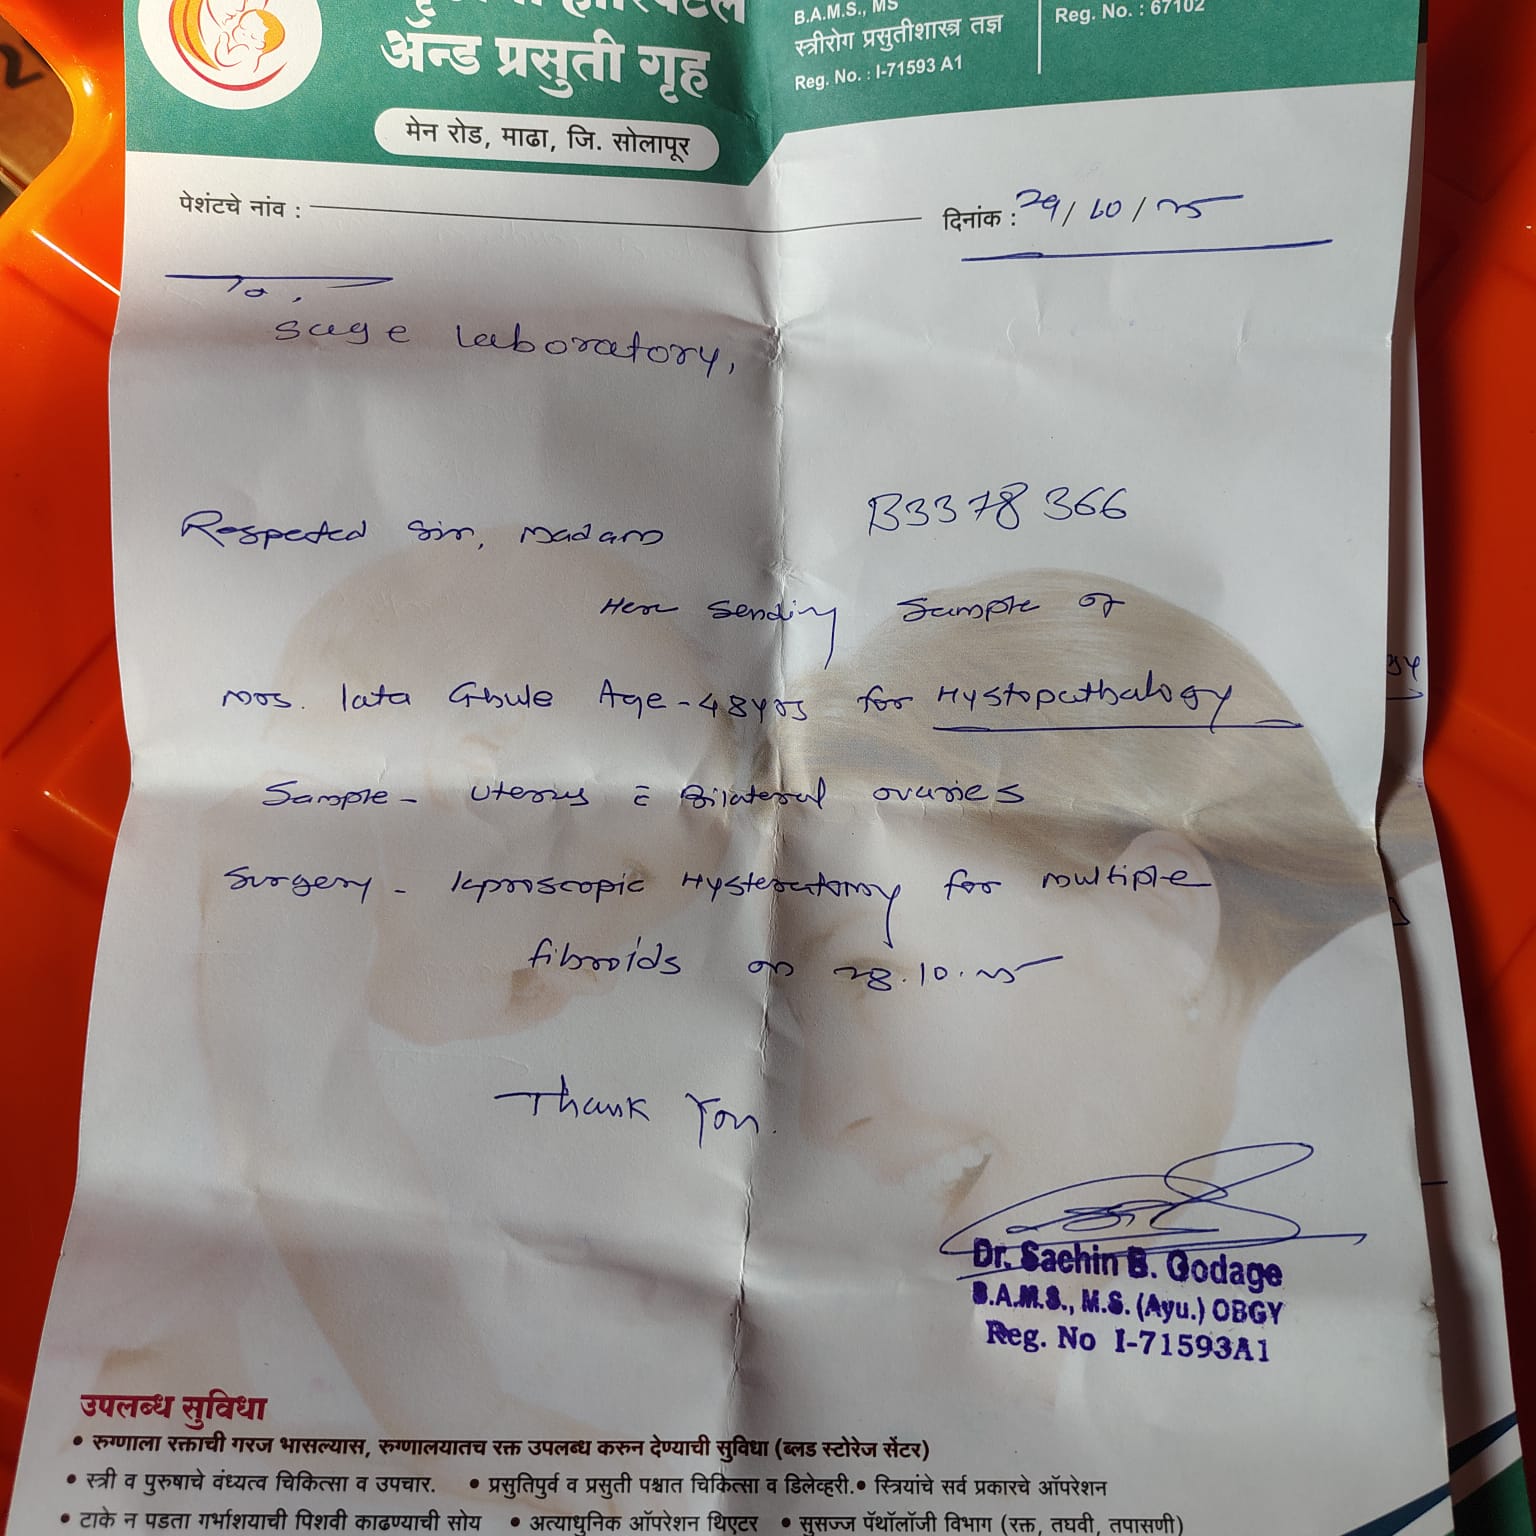 हॉस्पिटल
अ‍ॅन्ड प्रसुती गृह
मेन रोड, माढा, जि. सोलापूर
B.A.M.S., MS
स्त्रीरोग प्रसुतीशास्त्र तज्ञ
Reg. No. : I-71593 A1
Reg. No. : 67102
पेशंटचे नांव :
दिनांक : 29/10/25
To,
Sage laboratory,
Respected Sir, Madam
B3378366
Here Sending Sample of
Mrs. lata Ghule Age-48yrs for Hystopathalogy
Sample - Uterus c̄ Bilateral ovaries
Surgery - laproscopic Hysterectomy for multiple
fibroids on 28.10.25
Thank You.
Dr. Sachin B. Godage
B.A.M.S., M.S. (Ayu.) OBGY
Reg. No I-71593A1
उपलब्ध सुविधा
• रुग्णाला रक्ताची गरज भासल्यास, रुग्णालयातच रक्त उपलब्ध करुन देण्याची सुविधा (ब्लड स्टोरेज सेंटर)
• स्त्री व पुरुषाचे वंध्यत्व चिकित्सा व उपचार. • प्रसुतिपुर्व व प्रसुती पश्चात चिकित्सा व डिलेव्हरी. • स्त्रियांचे सर्व प्रकारचे ऑपरेशन
• टाके न पडता गर्भाशयाची पिशवी काढण्याची सोय • अत्याधुनिक ऑपरेशन थिएटर • सुसज्ज पॅथॉलॉजी विभाग (रक्त, लघवी, तपासणी)